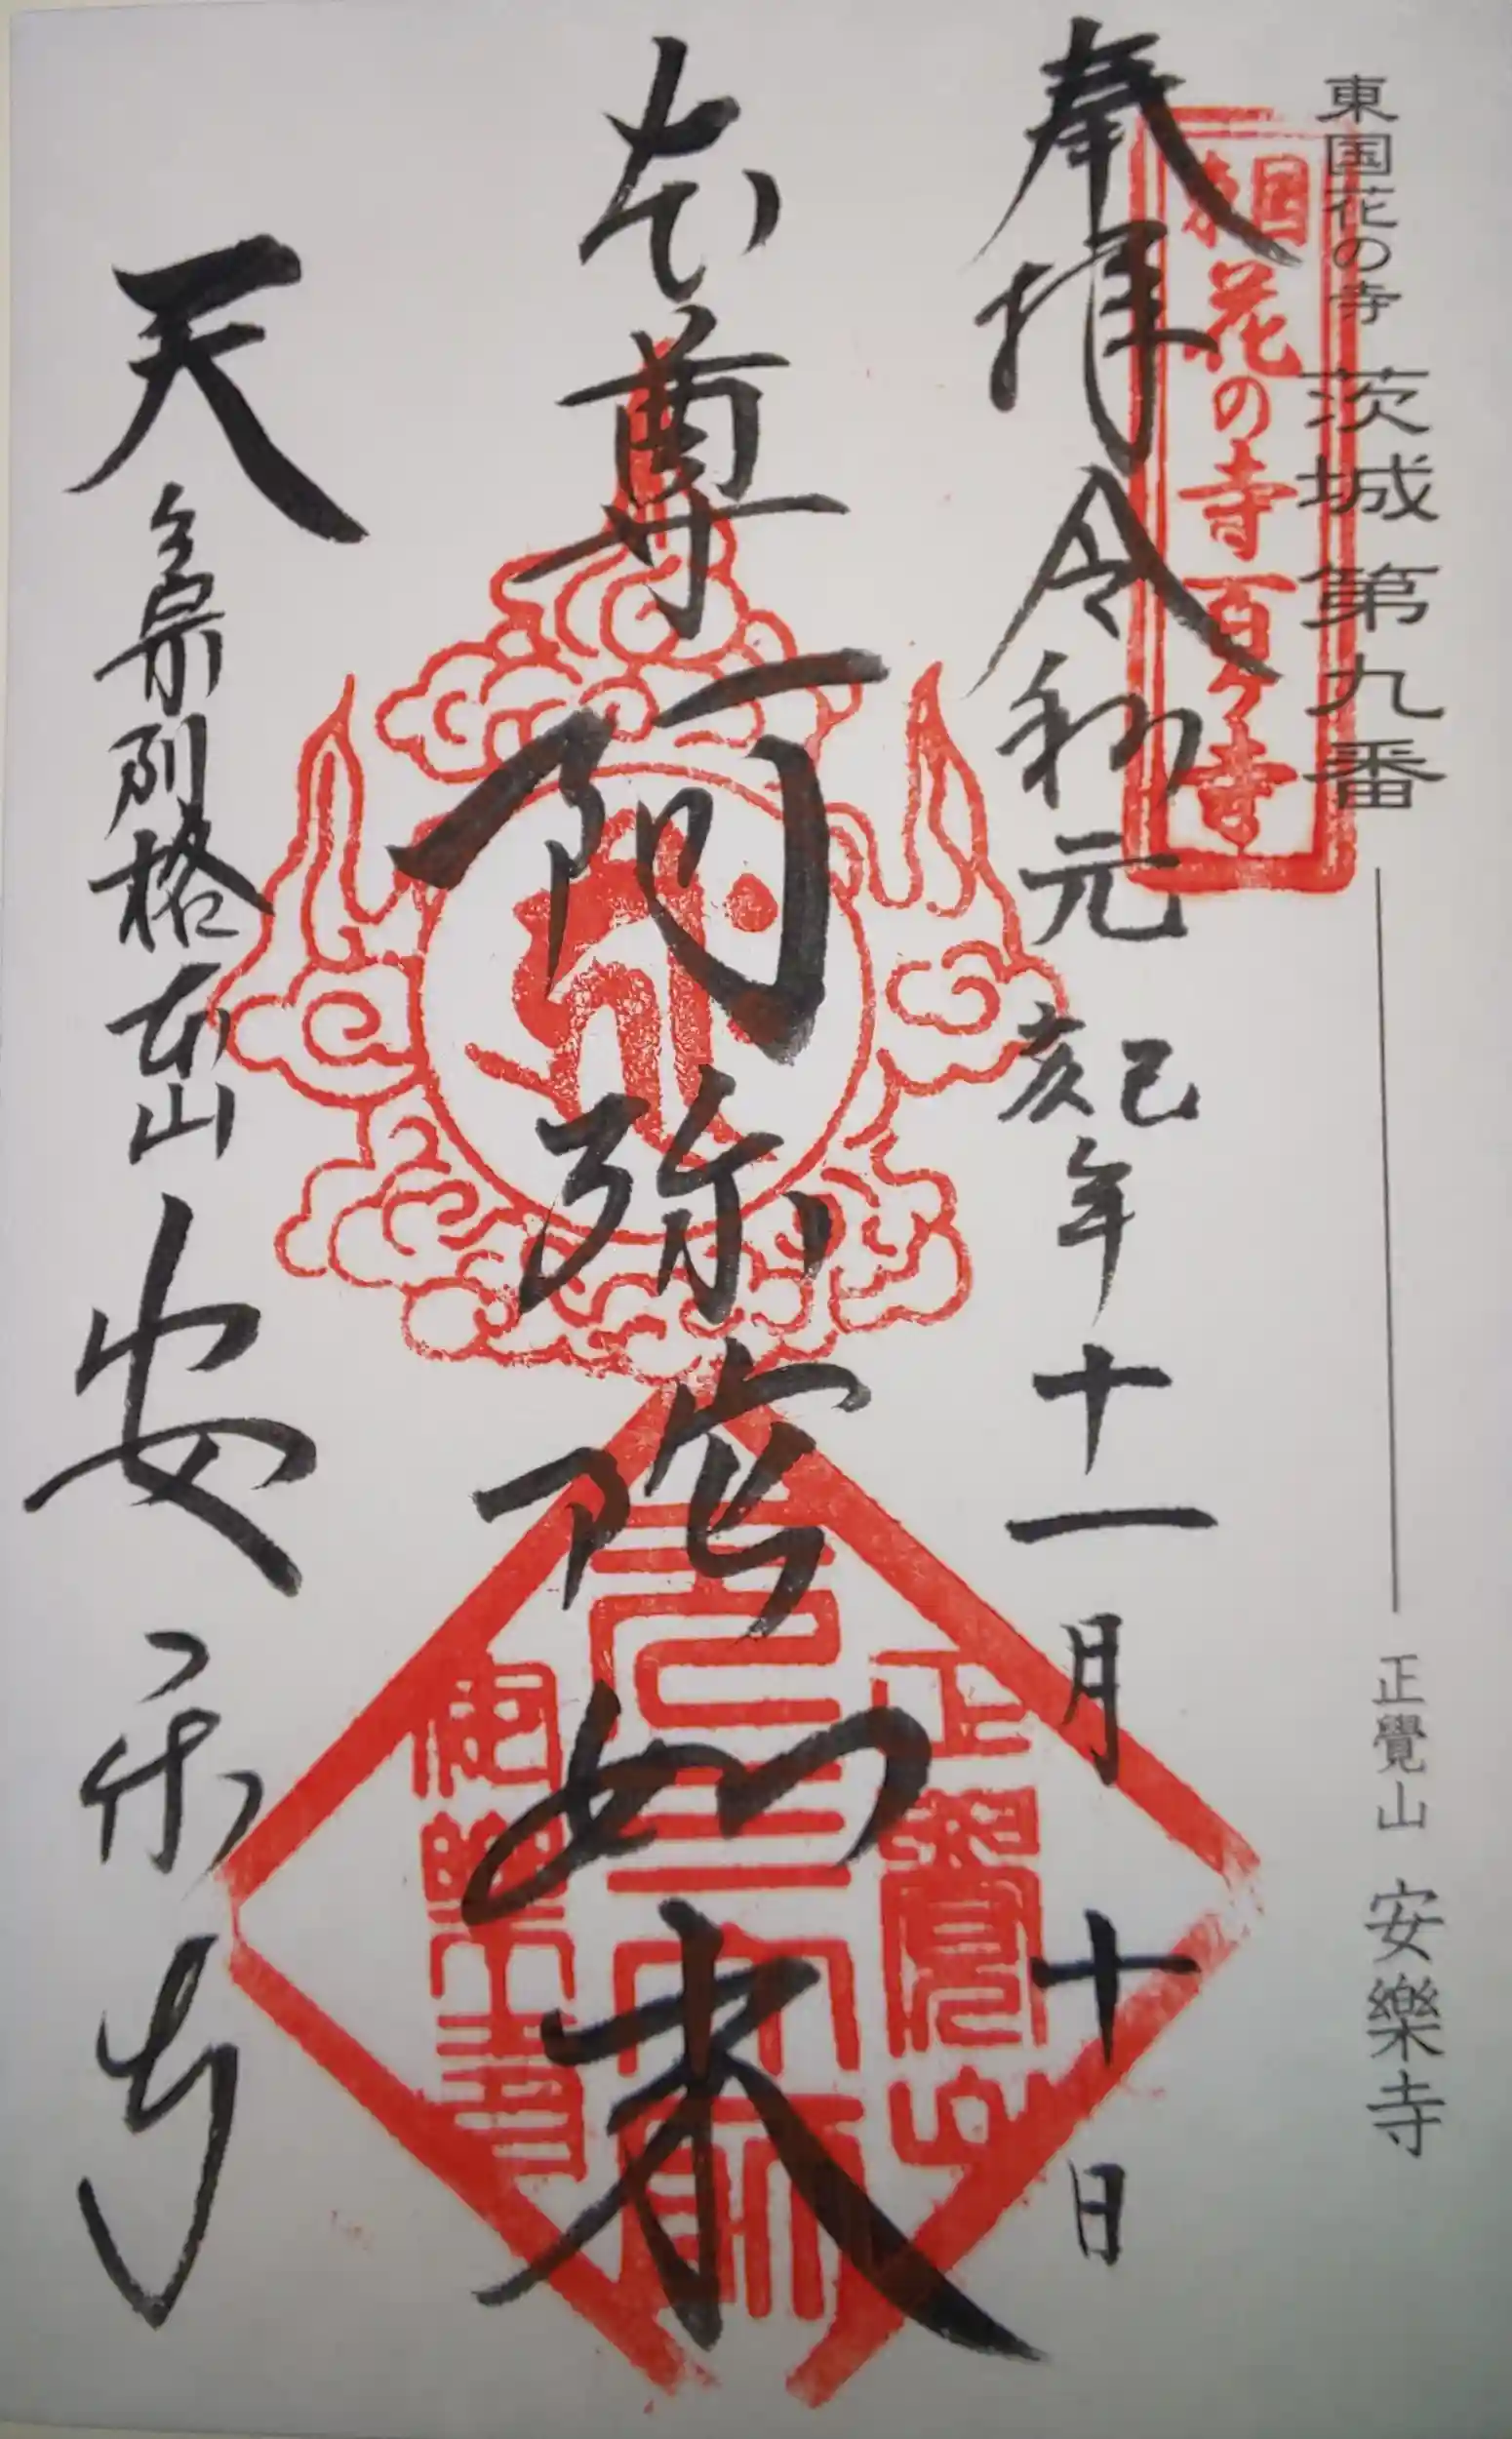 東国花の寺 茨城第九番 正覺山 安樂寺
東国花の寺百ヶ寺
奉拝 令和元己亥年十一月十日
本尊 阿弥陀如来
正覺山
元三大師
天台宗別格本山 安楽寺